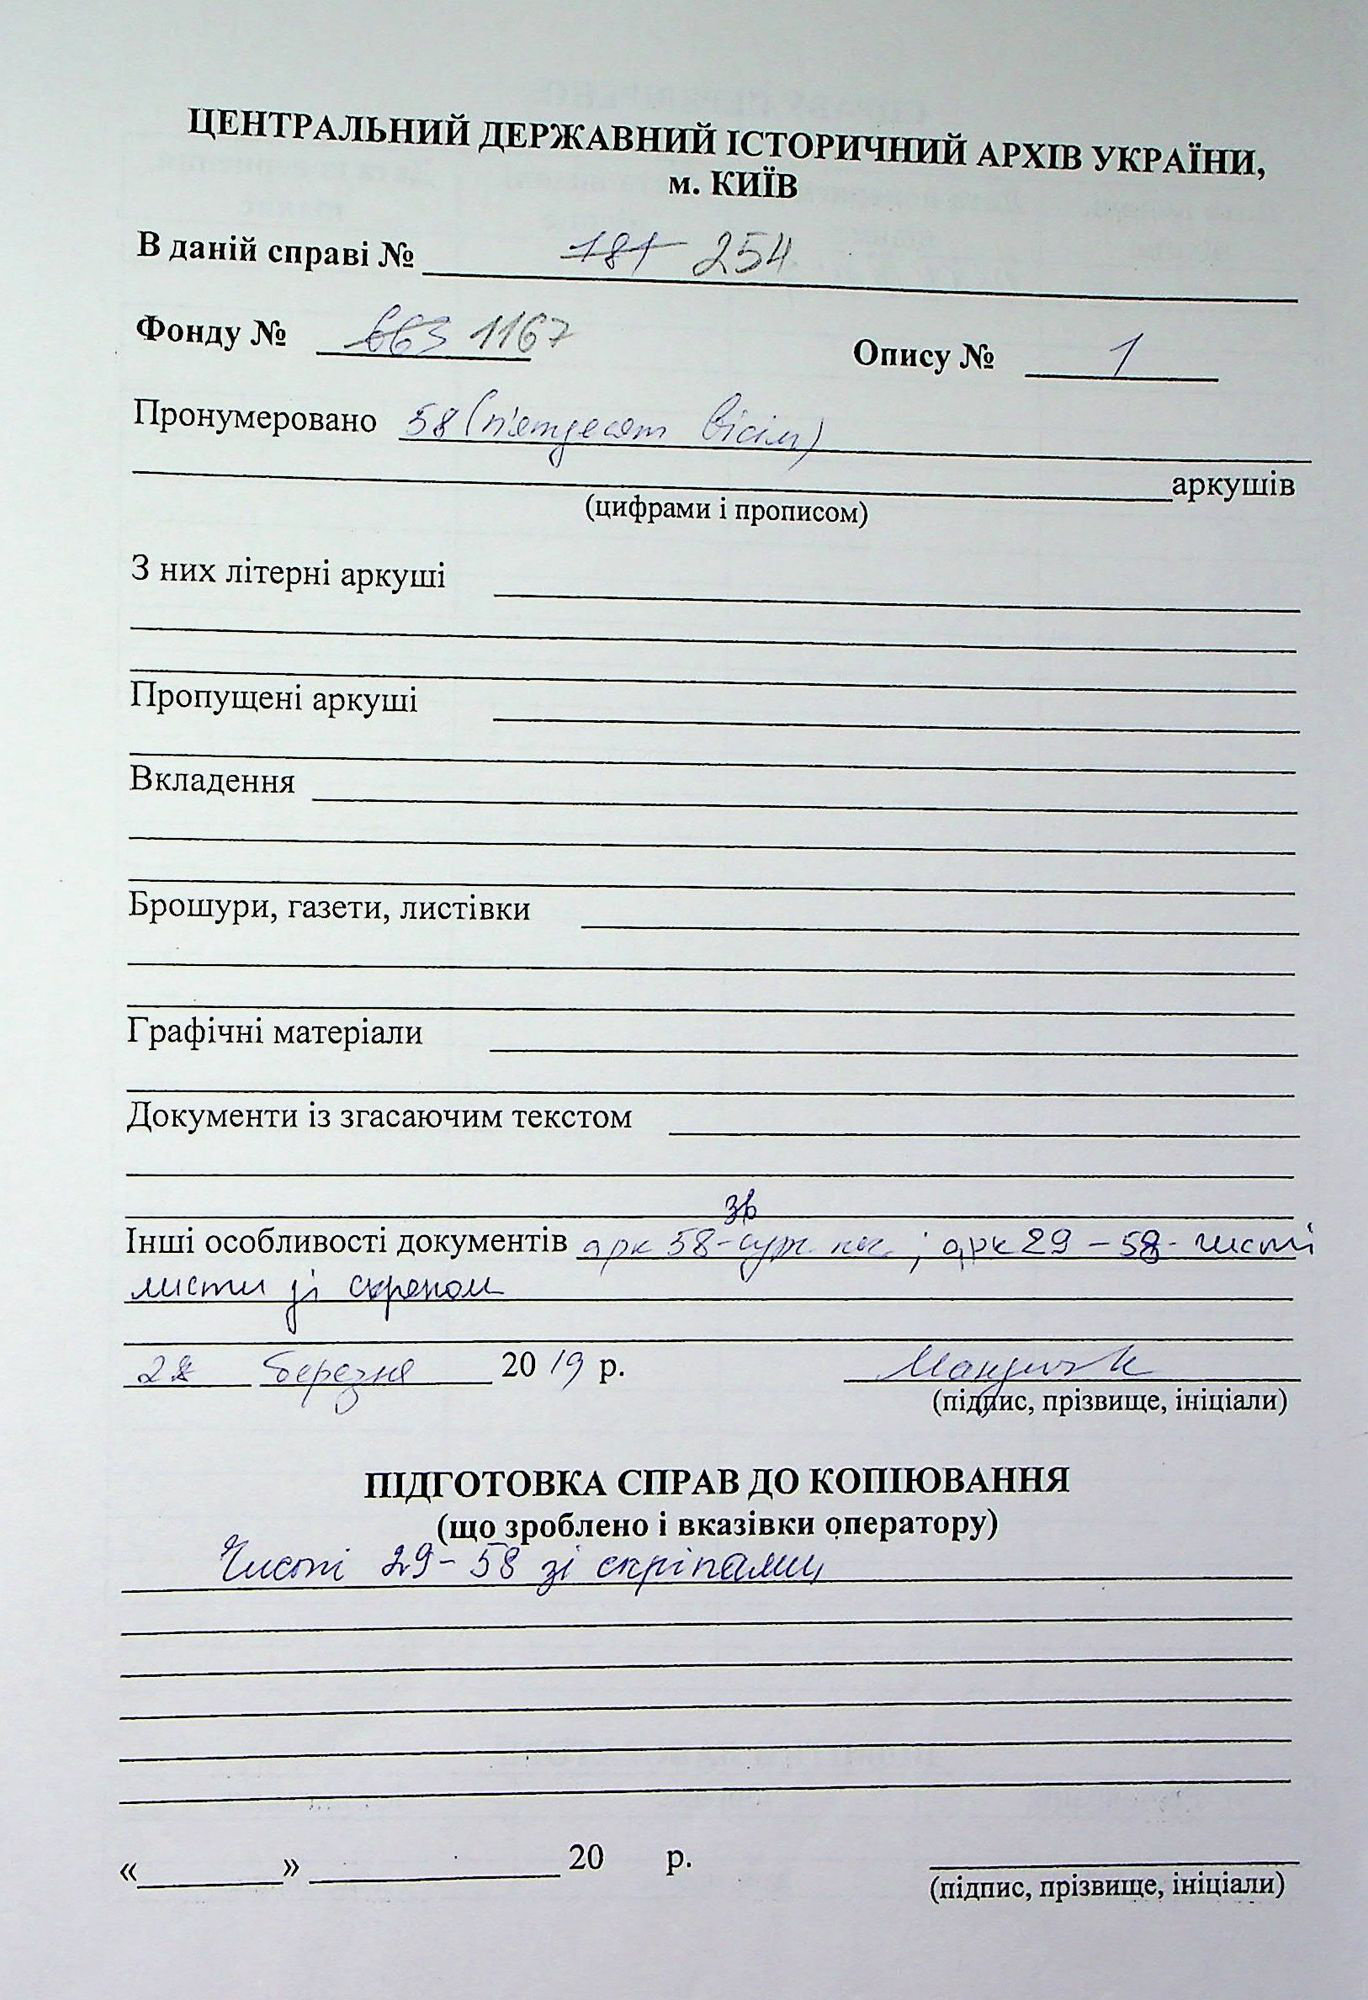 ЦЕНТРАЛЬНИЙ ДЕРЖАВНИЙ ІСТОРИЧНИЙ АРХІВ УКРАЇНИ,
м. КИЇВ
В даній справі № 181 254
Фонду № 663 1167 Опису № 1
Пронумеровано 58 (п'ятдесят вісім)
аркушів
(цифрами і прописом)
З них літерні аркуші
Пропущені аркуші
Вкладення
Брошури, газети, листівки
Графічні матеріали
Документи із згасаючим текстом
зв
Інші особливості документів арк 58- ; арк 29 – 58- чисті
листи зі скрепом
28 березня 2019 р.
(підпис, прізвище, ініціали)
ПІДГОТОВКА СПРАВ ДО КОПІЮВАННЯ
(що зроблено і вказівки оператору)
Чисті 29-58 зі скріпами
«________» ______________ 20 р.
(підпис, прізвище, ініціали)